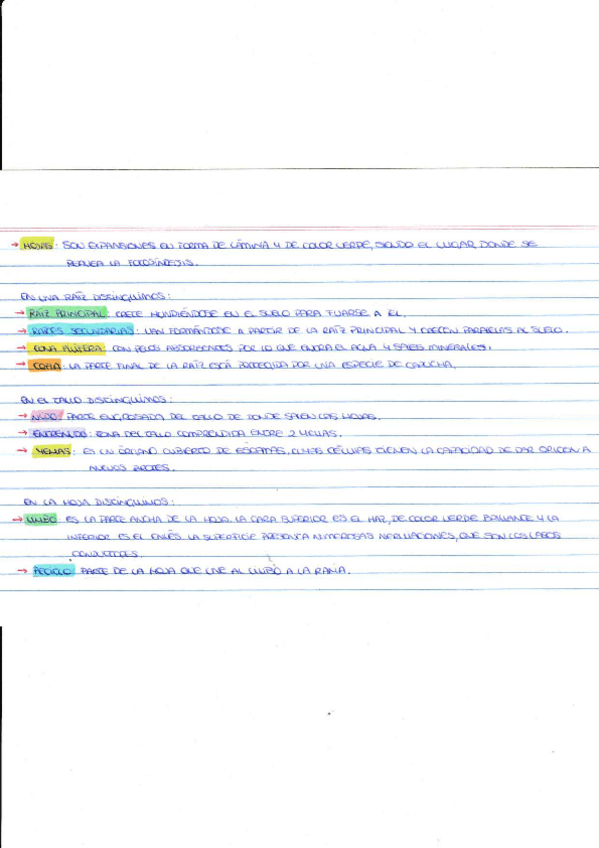 → HOJAS: SON EXPANSIONES EN FORMA DE LÁMINA Y DE COLOR VERDE, SIENDO EL LUGAR DONDE SE
REALIZA LA FOTOSÍNTESIS.
EN UNA RAÍZ DISTINGUIMOS:
→ RAÍZ PRINCIPAL: CRECE HUNDIÉNDOSE EN EL SUELO PARA FIJARSE A ÉL.
→ RAÍCES SECUNDARIAS: VAN FORMÁNDOSE A PARTIR DE LA RAÍZ PRINCIPAL Y CRECEN PARALELAS AL SUELO.
→ ZONA PILÍFERA: CON PELOS ABSORBENTES POR LO QUE ENTRA EL AGUA Y SALES MINERALES.
→ COFIA: LA PARTE FINAL DE LA RAÍZ ESTÁ PROTEGIDA POR UNA ESPECIE DE CAPUCHA.
EN EL TALLO DISTINGUIMOS:
→ NUDO: PARTE ENGROSADA DEL TALLO DE DONDE SALEN LAS HOJAS.
→ ENTRENUDO: ZONA DEL TALLO COMPRENDIDA ENTRE 2 YEMAS.
→ YEMAS: ES UN ÓRGANO CUBIERTO DE ESCAMAS, CUYAS CÉLULAS TIENEN LA CAPACIDAD DE DAR ORIGEN A
NUEVOS BROTES.
EN LA HOJA DISTINGUIMOS:
→ LIMBO: ES LA PARTE ANCHA DE LA HOJA. LA CARA SUPERIOR ES EL HAZ, DE COLOR VERDE BRILLANTE Y LA
INFERIOR ES EL ENVÉS. LA SUPERFICIE PRESENTA NUMEROSAS NERVIACIONES, QUE SON LOS VASOS
CONDUCTORES.
→ PECIOLO: PARTE DE LA HOJA QUE UNE AL LIMBO A LA RAMA.